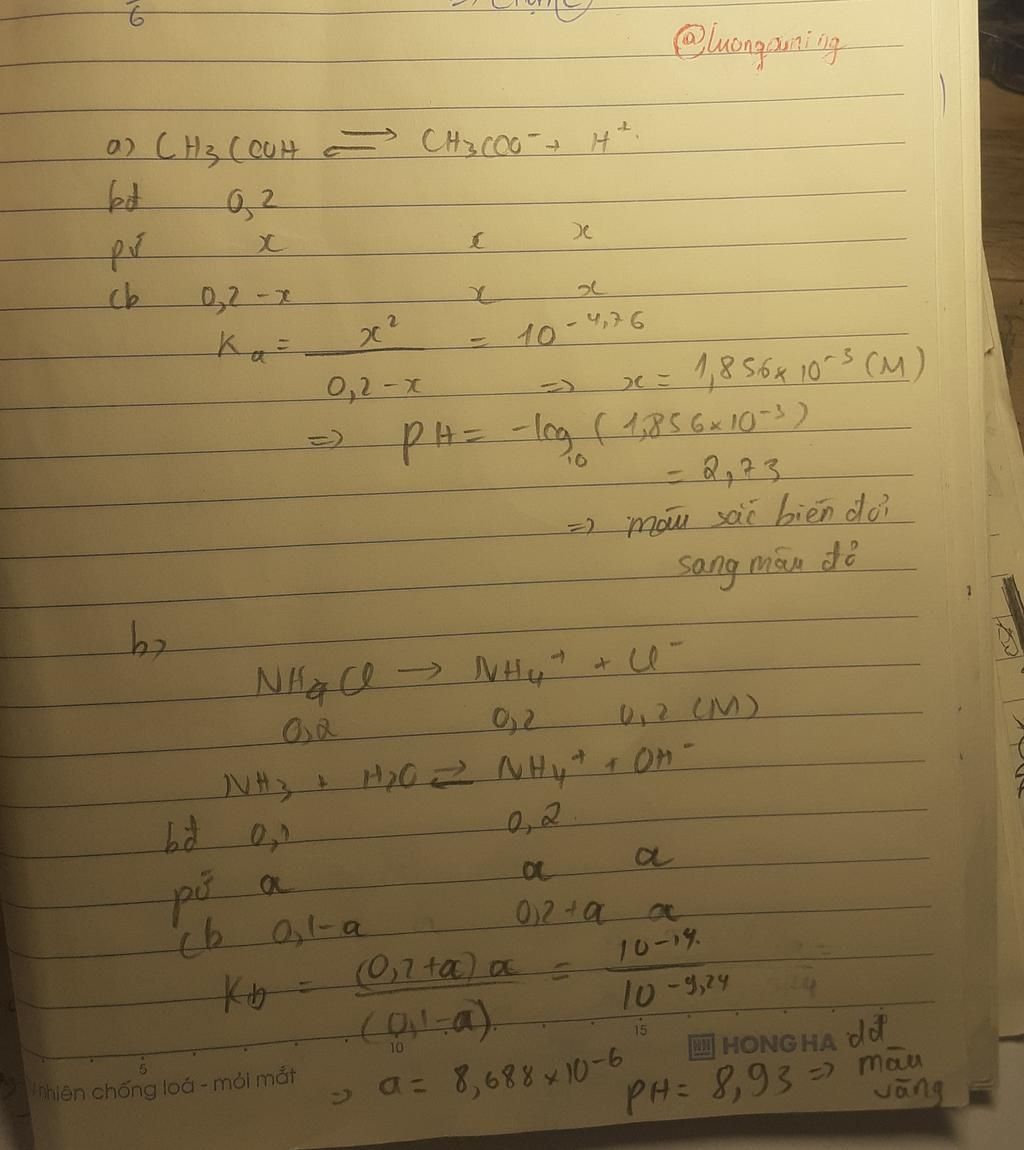 6
@luongxuning
a) CH3COOH ⇌ CH3COO⁻ + H⁺
bđ 0,2
pứ x x x
cb 0,2-x x x
Ka = x² / (0,2-x) = 10^-4,76
=> x = 1,856×10⁻³ (M)
=> pH = -log₁₀ (1,856×10⁻³)
= 2,73
=> màu sắc biến đổi
sang màu đỏ
b)
NH4Cl → NH4⁺ + Cl⁻
0,2 0,2 0,2 (M)
NH3 + H2O ⇌ NH4⁺ + OH⁻
bđ 0,1 0,2
pứ a a a
cb 0,1-a 0,2+a a
Kb = (0,2+a)a / (0,1-a) = 10^-14 / 10^-9,24
5 10 15
nhiên chống loá - mỏi mắt
HONG HA
=> a = 8,688×10⁻⁶
pH = 8,93 => dd
màu
vàng